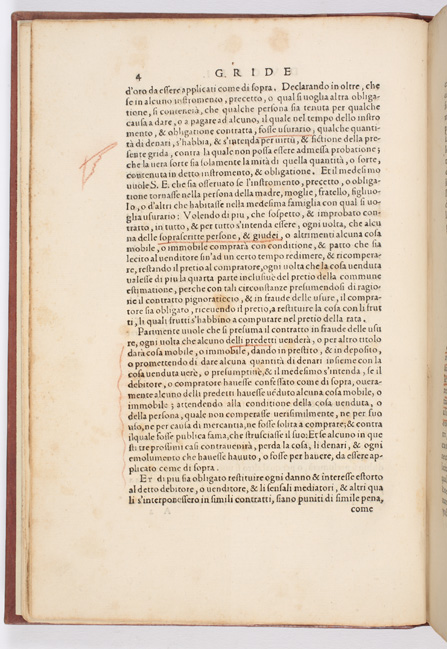 4 GRIDE
d'oro da essere applicati come di sopra. Declarando in oltre, che
se in alcuno instromento, precetto, o qual si uoglia altra obliga-
tione, si contenerà, che qualche persona sia tenuta per qualche
causa a dare, o a pagare ad alcuno, il quale nel tempo dello instro
mento, & obligatione contratta, fosse usurario, qualche quanti
tà di denari, s'habbia, & s'intenda per uirtù, & fictione della pre-
sente grida, contra la quale non possa essere admessa probatione;
che la uera sorte sia solamente la mità di quella quantità, o sorte,
contenuta in detto instromento, & obligatione. Et il medesimo
uuole S. E. che sia osseruato se l'instromento, precetto, o obliga-
tione tornasse nella persona della madre, moglie, fratello, figliuo-
lo, o d'altri che habitasse nella medesima famiglia con qual si uo-
glia usurario: Volendo di piu, che sospetto, & improbato con-
tratto, in tutto, & per tutto s'intenda essere, ogni uolta, che alcu
na delle soprascritte persone, & giudei, o altrimenti alcuna cosa
mobile, o immobile comprarà con conditione, & patto che sia
lecito al uenditore fin'ad un certo tempo redimere, & ricompera-
re, restando il pretio al compratore, ogni uolta che la cosa uenduta
ualesse di piu la quarta parte inclusiuè del pretio della commune
estimatione, perche con tali circonstanze presumendosi di ragio-
ne il contratto pignoratitio, & in fraude delle usure, il compra-
tore sia obligato, riceuendo il pretio, a restituire la cosa con li frut
ti, li quali frutti s'habbino a computare nel pretio della rata.
Parimente uuole che si presuma il contratto in fraude delle usu
re, ogni uolta che alcuno delli predetti uenderà, o per altro titolo
darà cosa mobile, o immobile, dando in prestito, & in deposito,
o promettendo di dare alcuna quantità di denari insieme con la
cosa uenduta uerè, o presumptiuè, & il medesimo s'intenda, se il
debitore, o compratore hauesse confessato come di sopra, ouera-
mente alcuno delli predetti hauesse uẽduto alcuna cosa mobile, o
immobile; attendendo alla conditione della cosa uenduta, o
della persona, quale non comperasse uerisimilmente, ne per suo
uso, ne per causa di mercantia, ne fosse solita a comprare; & contra
il quale fosse publica fama, che strusciasse il suo: Et se alcuno in que
sti tre prossimi casi contrauenirà, perda la cosa, li denari, & ogni
emolumento che hauesse hauuto, o fosse per hauere, da essere ap-
plicato come di sopra.
Et di piu sia obligato restituire ogni danno & interesse estorto
al detto debitore, o uenditore, & li sensali mediatori, & altri qua
li s'interponessero in simili contratti, siano puniti di simile pena,
come